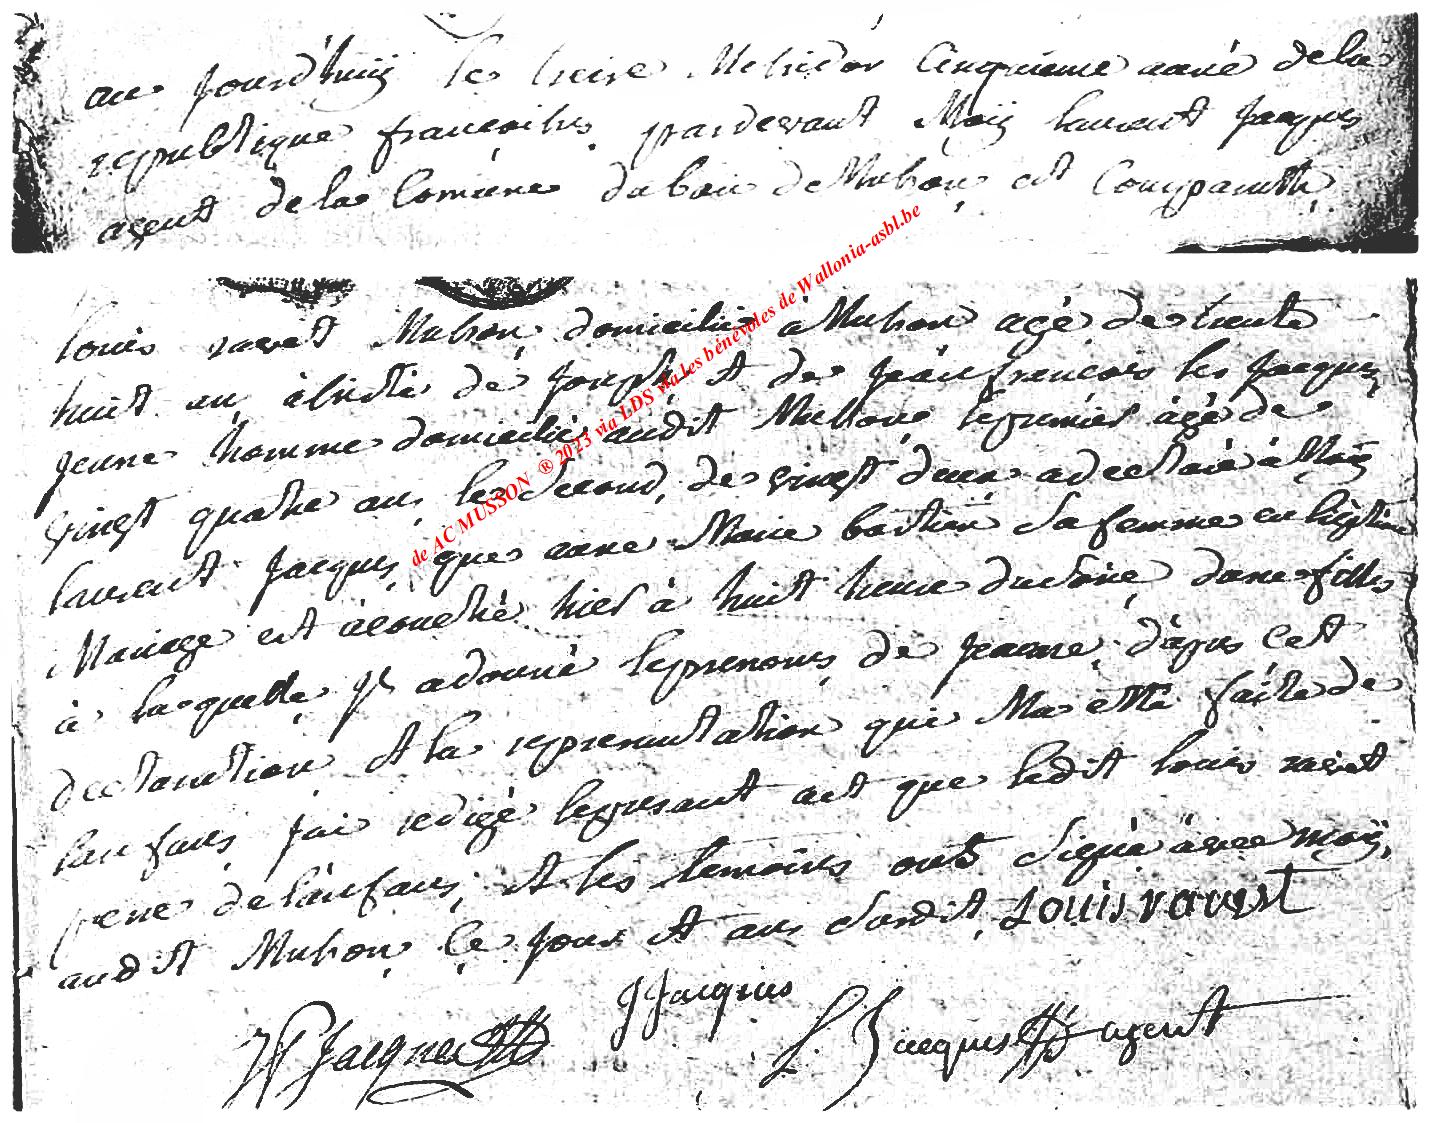 au jourd'huij le treise Mesidor Cinquieme anné de la
republique francoises pardevant Moij laurent Jacques
agent de la Comune du ban de Musson est Comparutte
louis ravet Musson domicilié à Musson agé de trente
huit an assisté de Joseph et de Jean francois les Jacques
jeune homme domicilié audit Musson le premier agé de
vingt quatre ans le second de vingt deux a declaré à Moij
laurent Jacques que anne Marie bastien sa femme en legitime
Mariage est acouché hier à huit heure du soire dune fille
à laquelle Jl a donné le prenoms de Jeanne d'apres cest
declaration et la representation qui Ma etté faite de
lanfans jai redigé le presant act que ledit louis ravet
pere de lanfans et les temoins ont signé avec moij
audit Musson le jour et ans surdit Louis ravest
J Jacques
JF Jacques L. Jacques agent
de AC MUSSON ® 2023 via LDS via les bénévoles de Wallonia-asbl.be